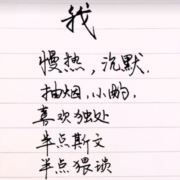 我
慢热，沉默.
抽烟,小酌.
喜欢独处
半点斯文
半点猥琐